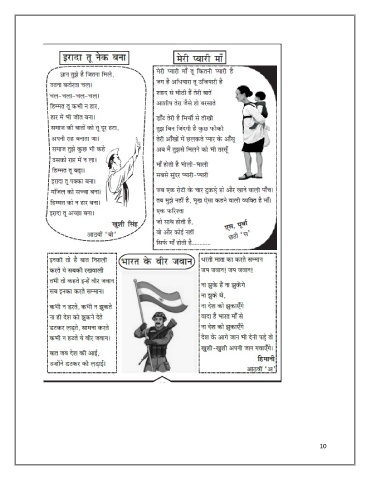 इरादा तू नेक बना
ज्ञान तुझे है जितना मिले,
उतना बटोरता चल।
चल-चला-चल-चल।
हिम्मत तू कभी न हार,
हार में भी जीत बना।
समाज की बातों को तू दूर हटा,
अपनी राह बनाता जा।
समाज तुझे कुछ भी कहे
उसको राह में न ला।
हिम्मत तू बढ़ा।
इरादा तू पक्का बना।
मंजिल को सच्चा बना।
हिम्मत को न हार बना।
इरादा तू अच्छा बना।
खुशी सिंह
आठवीं 'बी'
मेरी प्यारी माँ
मेरी प्यारी माँ तू कितनी प्यारी है
जग है अँधियारा तू उजियारी है
शहद से मीठी हैं तेरी बातें
आशीष तेरा जैसे हो बरसातें
डाँट तेरी है मिर्ची से तीखी
तुझ बिन जिंदगी है कुछ फीकी
तेरी आँखों में छलकते प्यार के आँसू
अब मैं तुझसे मिलने को भी तरसूँ
माँ होती है भोली-भाली
सबसे सुंदर प्यारी-प्यारी
जब एक रोटी के चार टुकड़े हों और खाने वाले पाँच।
तब मुझे नहीं है, भूख ऐसा कहने वाली व्यक्ति है माँ।
एक फरिश्ता
जो साथ होती है,
वो और कोई नहीं
सिर्फ माँ होती है
एस. पूर्वा
छठी 'ए'
भारत के वीर जवान
इनकी तो है बात निराली
करते ये सबकी रखवाली
तभी तो कहते इन्हें वीर जवान
सब इनका करते सम्मान।
कभी न डरते, कभी न झुकते
ना ही देश को झुकने देते
डटकर लड़ते, सामना करते
कभी न हटते ये वीर जवान।
बात जब देश की आई,
उन्होंने डटकर की लड़ाई।
भारत माता का करते सम्मान
जय जवान! जय जवान!
ना झुके हैं ना झुकेंगे
ना झुके थे,
ना देश को झुकाएँगे
वादा है भारत माँ से
ना देश को झुकाएँगे
देश के आगे जान भी देनी पड़े तो
खुशी-खुशी अपनी जान गवाएँगे।
हिमानी
आठवीं 'अ'
10